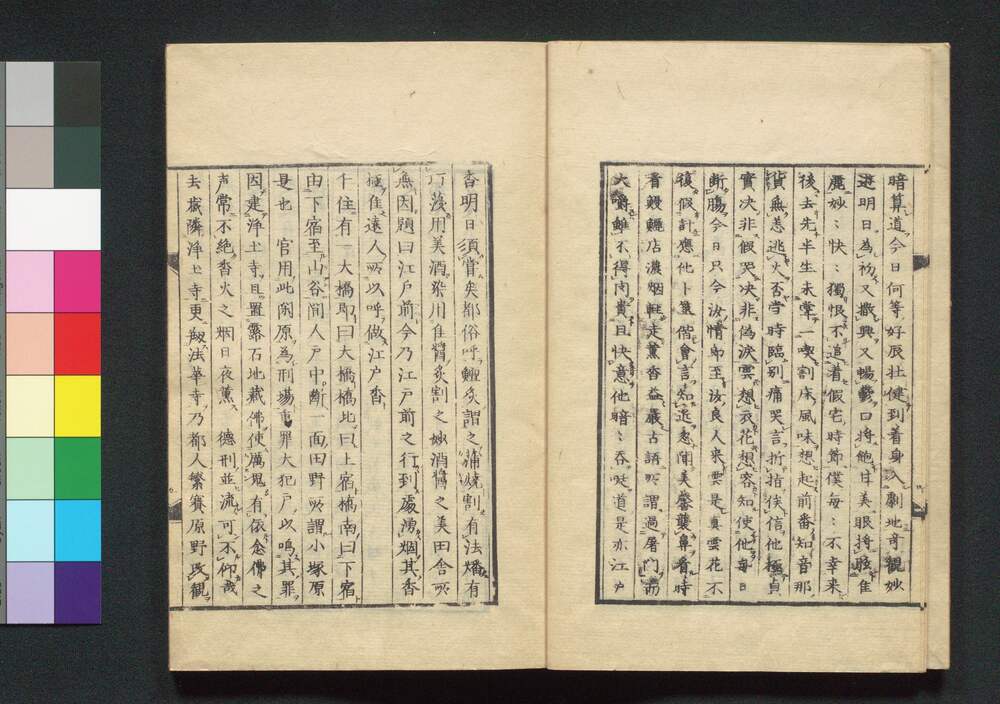 暗算道今日何等好辰壮健到着身入劇地奇観妙
遊明日為初又撒興又暢鬱口将飽甘美眼将眩佳
麗妙〻快〻独恨不這着假宅時節僕毎〻不幸来
後去先半生未掌一喫割床風味想起前番知音那
貨無恙逃火否当時臨別痛哭言折指俟信他極貞
実决非假哭决非偽涙雲想衣花想容知使他毎日
断膓今日只今汝情郎至汝良人来雲是真雲花不
後假計應他卜筮偕會言知近忽聞美馨襲鼻看時
者鰻鱺店濃烟走薫香益嚴古語所謂過屠門而
大嚼雖不得肉貴且快意他暗〻呑唾道是亦江戸
香明日須賞矣都俗呼鱣炙謂之蒲焼割有法燔有
巧落用美酒染用佳醤炙割之妙消醤之美田舎所
無因題曰江戸前今乃江戸前之行到處湧烟其香
極佳遠人所以呼做江戸香
千住有一大橋即曰大橋橋北曰上宿橋南曰下宿
由下宿至山谷間人戸中断一面田野所謂小塚原
是也 官用此閑原為刑場重罪大犯戸以鳴其罪
因建浄土寺且置露石地蔵佛使厲鬼有依念佛之
声常不絶香火之烟日夜薫 徳刑並流可不仰哉
去歳隣浄土寺更剏法華寺乃都人繁賽原野改観